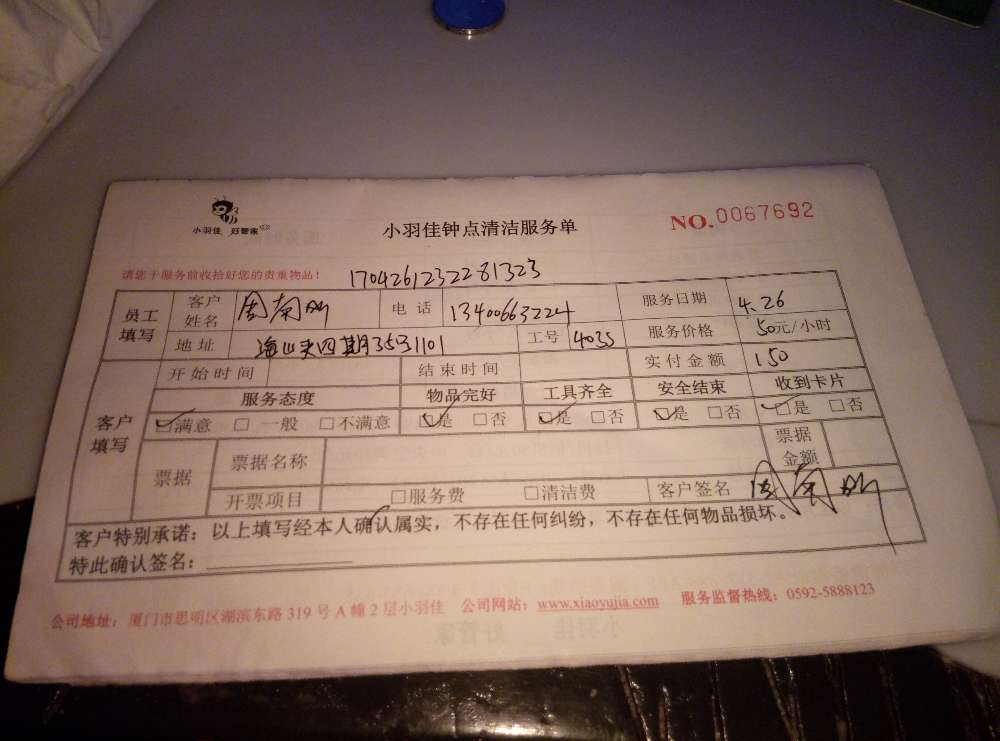 小羽佳 好管家
小羽佳钟点清洁服务单
NO.0067692
请您于服务前收拾好您的贵重物品！
1704261232281323
员工填写 客户姓名 周南 电话 13400663224 服务日期 4.26
地址 四期3531101 工号 4035 服务价格 50元/小时
客户填写 开始时间 结束时间 实付金额 150
服务态度 物品完好 工具齐全 安全结束 收到卡片
☑满意 □一般 □不满意 ☑是 □否 ☑是 □否 ☑是 □否 ☑是 □否
票据 票据名称 票据金额
开票项目 □服务费 □清洁费 客户签名 周南
客户特别承诺：以上填写经本人确认属实，不存在任何纠纷，不存在任何物品损坏。
特此确认签名：
公司地址：厦门市思明区湖滨东路 319 号 A 幢 2 层小羽佳 公司网站：www.xiaoyujia.com 服务监督热线：0592-5888123